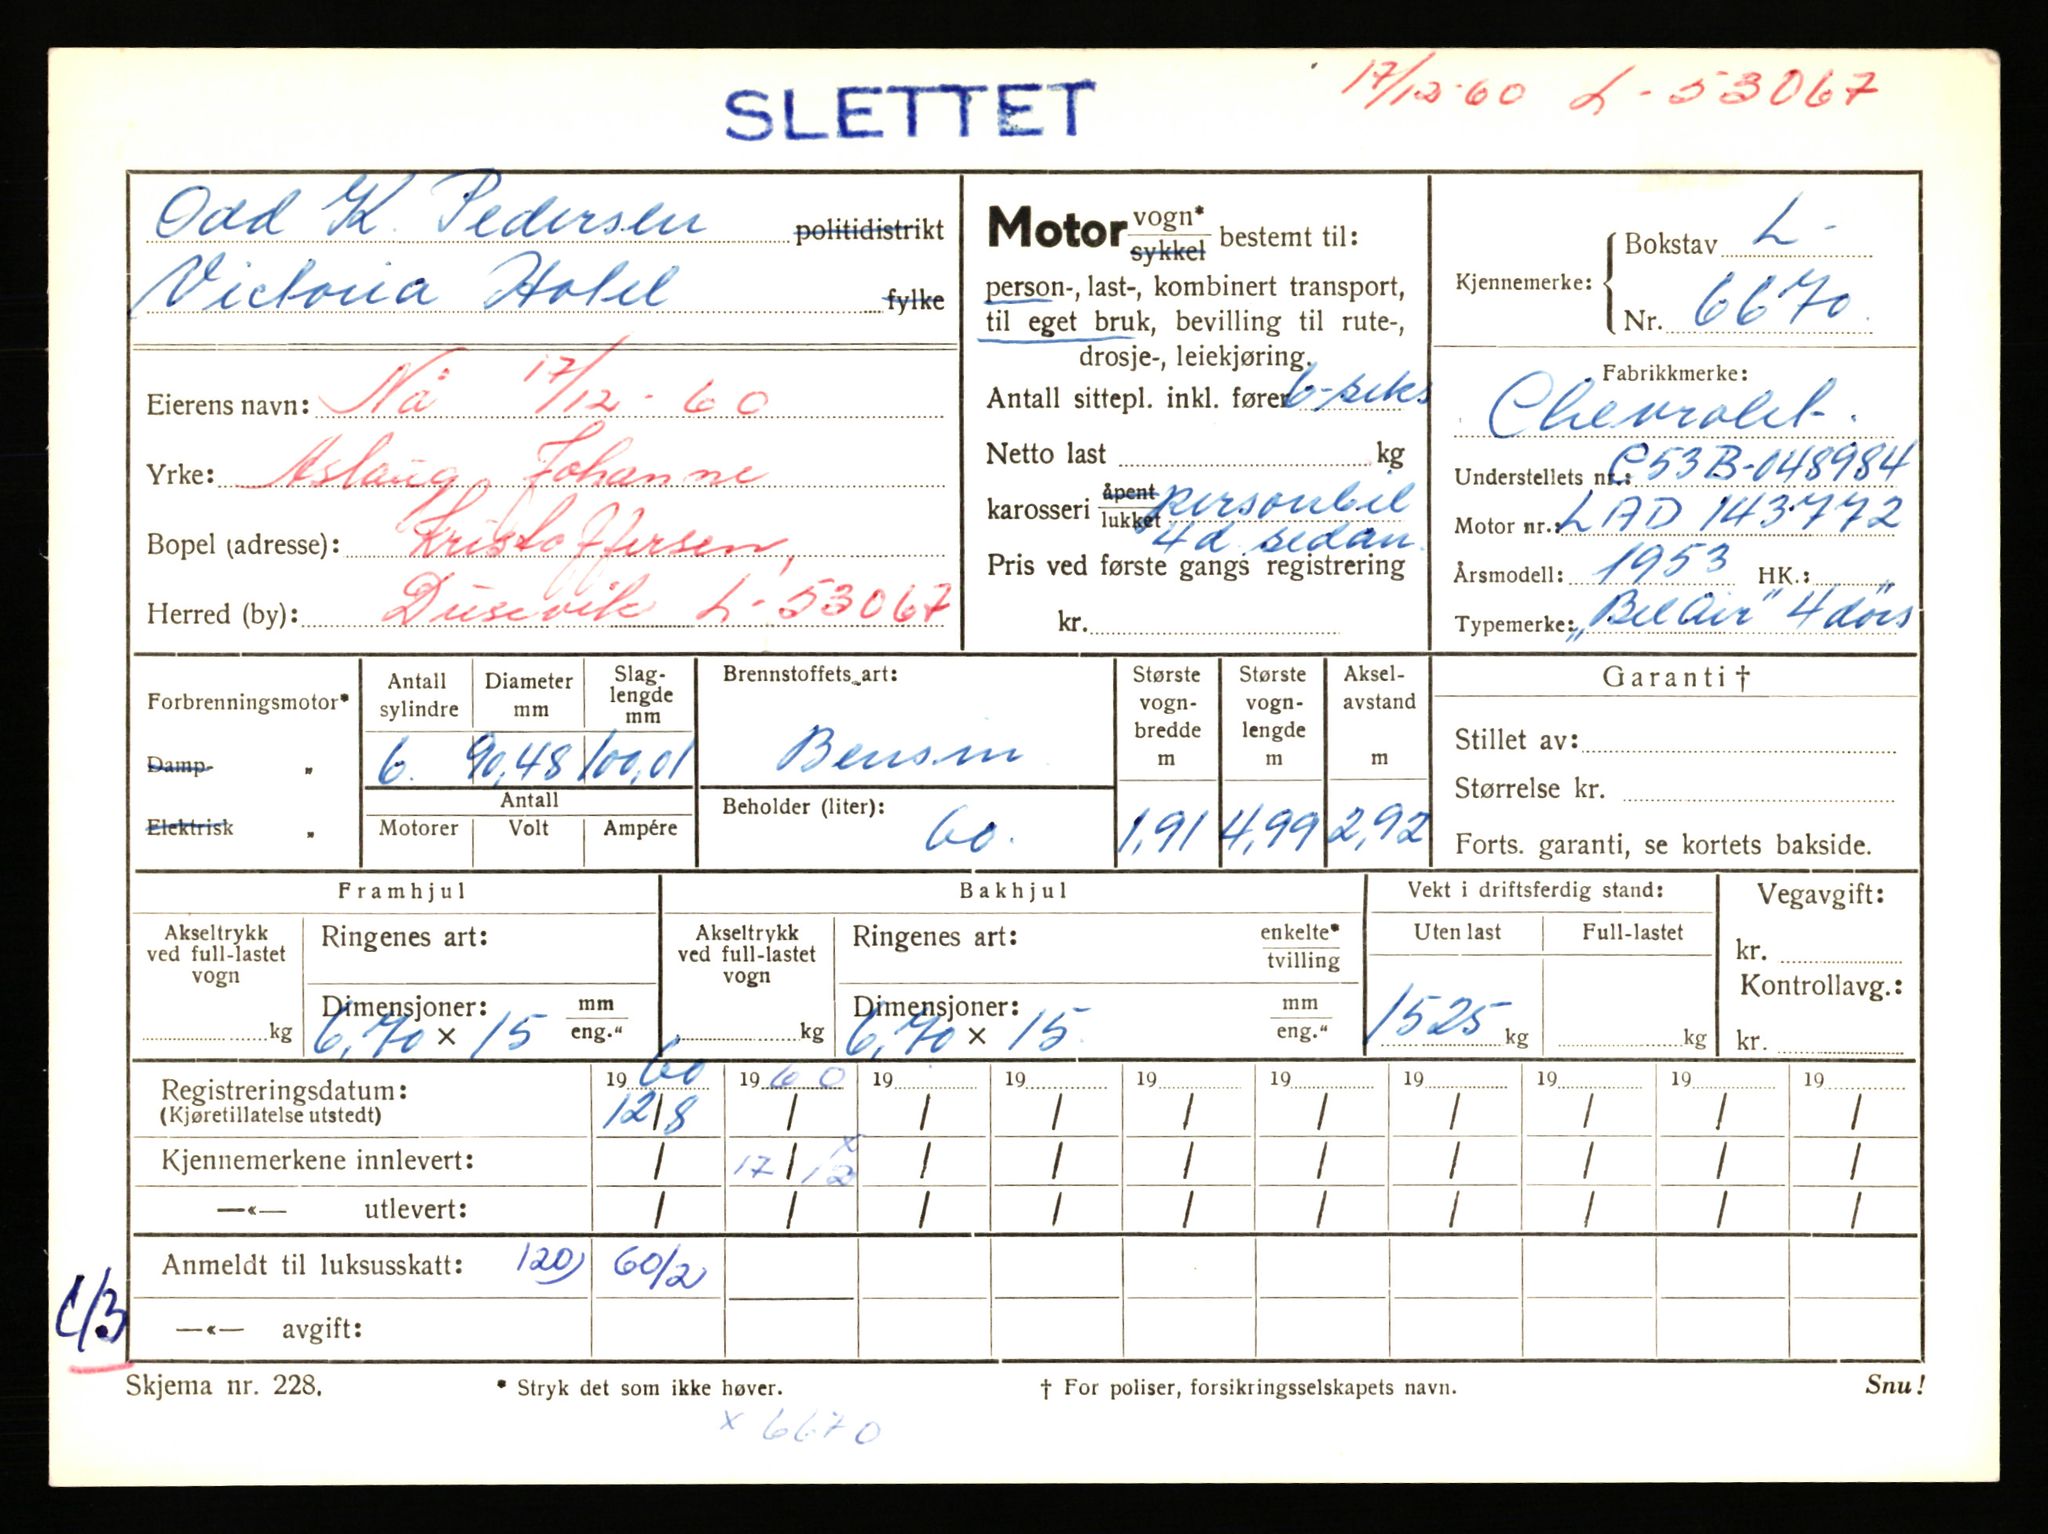 17/12-60 L-53067
SLETTET
Odd K. Pedersen politidistrikt
Victoria Hotel fylke
Eierens navn: Nå 17/12-60
Yrke: Aslaug Johanne
Bopel (adresse): Kristoffersen,
Herred (by): Dusevik L-53067
Motor vogn* sykkel bestemt til:
person-, last-, kombinert transport,
til eget bruk, bevilling til rute-,
drosje-, leiekjøring.
Antall sittepl. inkl. fører 6-seks
Netto last kg
karosseri åpent lukket personbil
4d. sedan.
Pris ved første gangs registrering
kr.
Kjennemerke: Bokstav L-
Nr. 6670.
Fabrikkmerke:
Chevrolet.
Understellets nr.: C53B-048984
Motor nr.: LAD 143772
Årsmodell: 1953 HK.:
Typemerke: „Bel Air" 4 dørs
Forbrenningsmotor*
Damp- „
Elektrisk „
Antall sylindre Diameter mm Slag-lengde mm
6. 90,48 100,01
Antall
Motorer Volt Ampére
Brennstoffets art:
Bensin
Beholder (liter):
60.
Største vogn-bredde m Største vogn-lengde m Aksel-avstand m
1,91 4,99 2,92
Garanti †
Stillet av:
Størrelse kr.
Forts. garanti, se kortets bakside.
Framhjul Bakhjul Vekt i driftsferdig stand: Vegavgift:
Akseltrykk ved full-lastet vogn kg
Ringenes art:
Dimensjoner: mm eng."
6,70 × 15
Akseltrykk ved full-lastet vogn kg
Ringenes art: enkelte* tvilling
Dimensjoner: mm eng."
6,70 × 15.
Uten last Full-lastet
1525 kg kg
kr.
Kontrollavg.:
kr.
Registreringsdatum: 19 60 19 60 19 19 19 19 19 19 19 19
(Kjøretillatelse utstedt) 12/8 / / / / / / / / /
Kjennemerkene innlevert: / 17/12 x / / / / / / / /
—«— utlevert: / / / / / / / / / /
Anmeldt til luksusskatt: 120) 60/2
—«— avgift:
Skjema nr. 228. * Stryk det som ikke høver. † For poliser, forsikringsselskapets navn. Snu!
x 6670